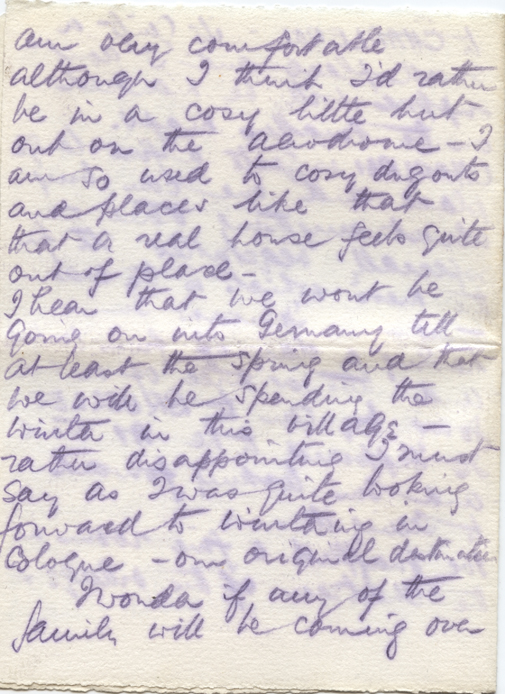 am very comfortable
although I think I'd rather
be in a cosy little hut
out on the aerodrome - I
am so used to cosy dugouts
and places like that
that a real house feels quite
out of place -
I hear that we wont be
going on into Germany till
at least the spring and that
we will be spending the
winter in this village -
rather disappointing I must
say as I was quite looking
forward to wintering in
Cologne - our original destination
I wonder if any of the
family will be coming over